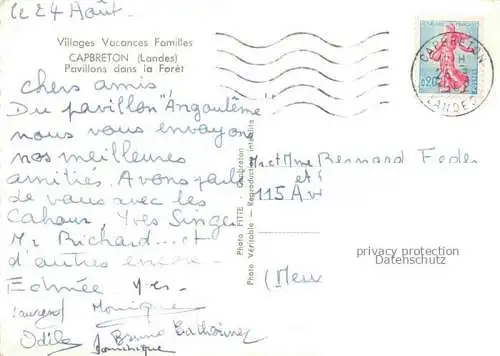 Le 24 Août.
Villages Vacances Familles
CAPBRETON (Landes)
Pavillons dans la Forêt
chers amis,
Du pavillon "Angoulême"
nous vous envoyons
nos meilleures
amitiés. Avons parlé
de vous avec les
Cahour, Yves Singe
Mr Richard... et
d'autres encore.
Edmée Yves
Laurent Monique
Odile Bruno Catherine
Dominique
Photo FITTE - Capbreton
Photo Véritable - Reproduction interdite
CAPBRETON
LANDES
0,20
Mr et Mme Bernard Feder
et
115 Av
(Meur
privacy protection
Datenschutz